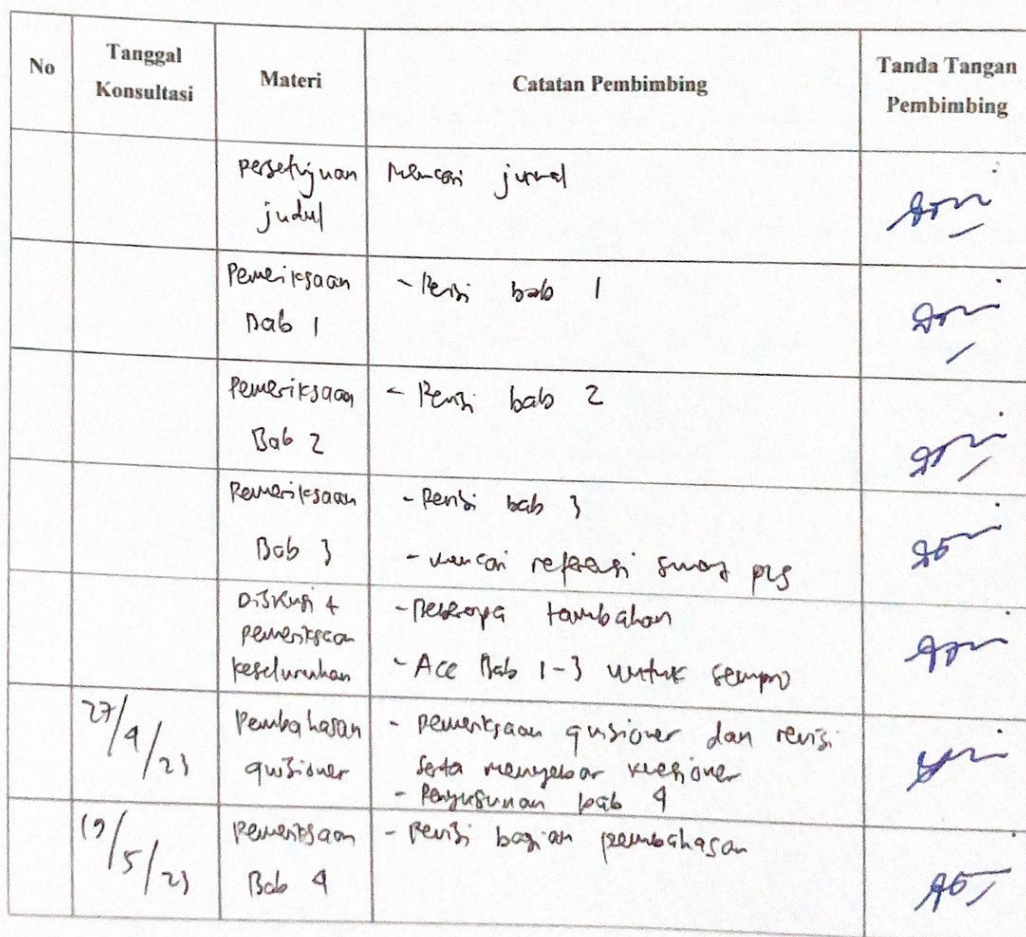 No
Tanggal
Konsultasi
Materi
Catatan Pembimbing
Tanda Tangan
Pembimbing
Persetujuan
judul
Mencari jurnal
Pemeriksaan
Bab 1
- Revisi bab 1
Pemeriksaan
Bab 2
- Revisi bab 2
Pemeriksaan
Bab 3
- Revisi bab 3
- mencari referensi smart pls
Diskusi &
pemeriksaan
keseluruhan
- Beberapa tambahan
- Acc Bab 1-3 untuk sempro
27/4/23
Pembahasan
quisioner
- pemeriksaan quisioner dan revisi
serta menyebar kuesioner
- Penyusunan bab 4
19/5/23
Pemeriksaan
Bab 4
- Revisi bagian pembahasan